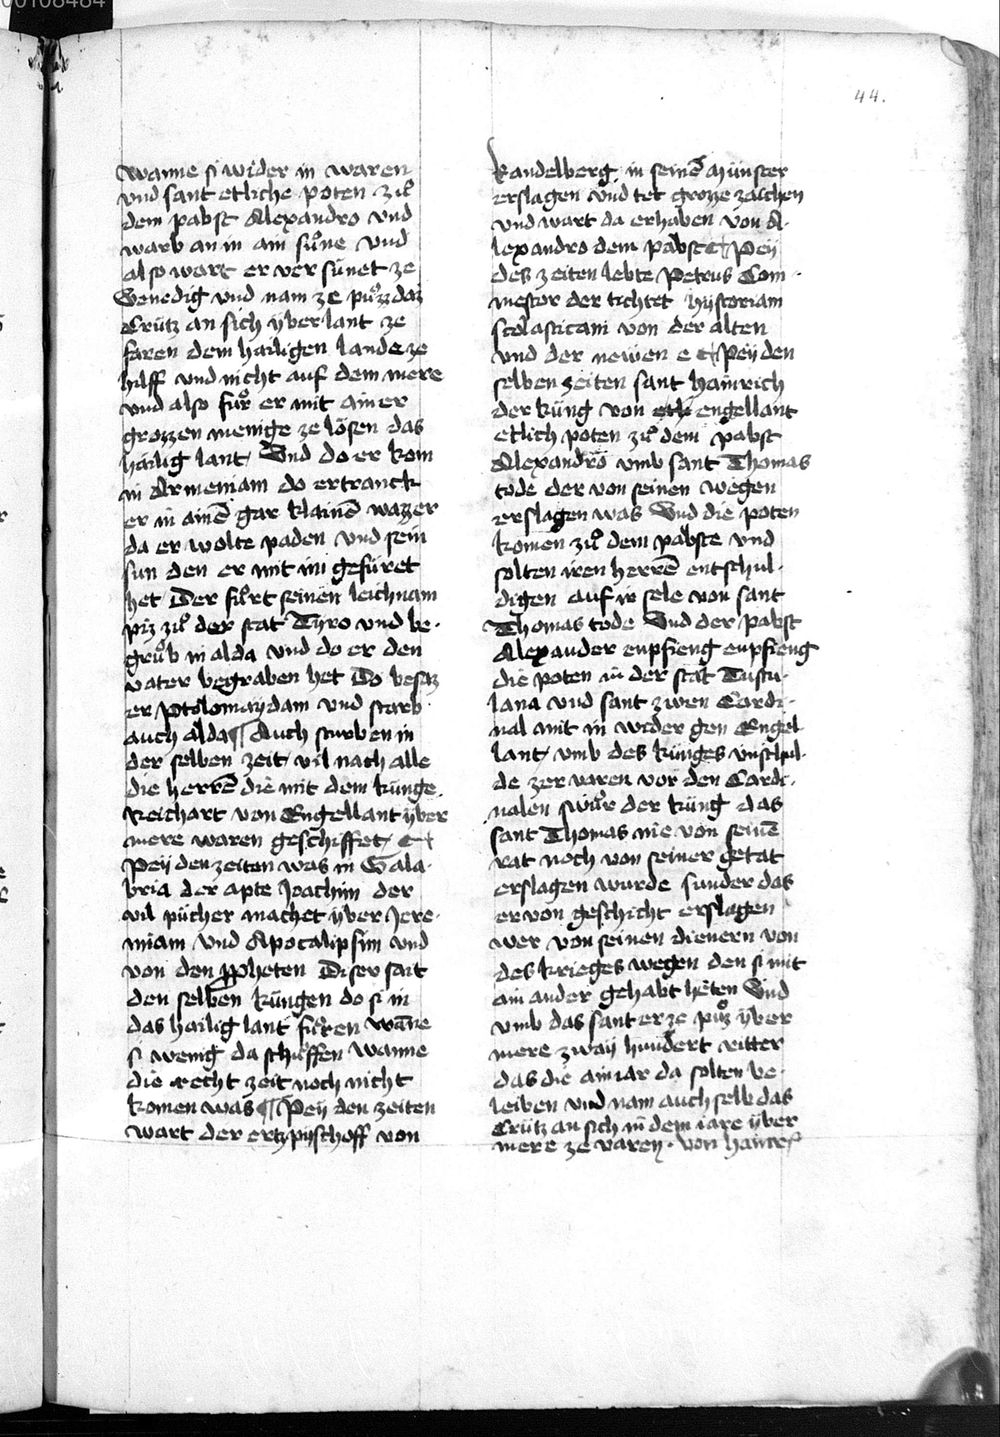 00108484
44.
wanne si wider in waren
vnd sant etliche poten zuͦ
dem pabst Alexandro vnd
warb an in ain suͦne vnd
also wart er ver sünet ze
Venedig vnd nam ze puͦzz daz
Crütz an sich ÿber lant ze
faren dem hailigen lande ze
hilff vnd nicht auf dem mere
vnd also fuͦr er mit ainer
grozzen menige ze lösen das
hailig lant / Vnd do er kom
in Armeniam do ertranck
er in ainē gar klainē wazzer
da er wolte paden vnd sein
sun den er mit im gefüret
het Der fuͦrt seinen leichnam
piz zuͦ der stat Tyro vnd be-
gruͦb in alda vnd do er den
vater begraben het Do besaz
er Ptolomaÿdam vnd starb
auch alda ¶ Auch sturben in
der selben zeit vil nach alle
die herrē die mit dem künge
Reichart von Engellant ÿber
mere waren geschiffet /
Peÿ den zeiten was in Gala-
bria der apte Joachim der
vil pücher machet ÿber Jere-
miam vnd Apocalipsim vnd
von den ꝓpheten Diser sait
den selben küngen do si in
das hailig lant fuͦren wāne
si wenig da schüffen wanne
die recht zeit noch nicht
komen was ¶ Peÿ den zeiten
wart der ertzpÿschoff von
kandelberg in seinē Münster
erslagen vnd tet grozze zaichen
vnd wart da erhaben von A-
lexandro dem pabste Peÿ
des zeiten lebte Petrus Com-
mestor der tichtet hÿstoriam
scolasticam von der alten
vnd der newen e Peÿ den
selben zeiten sant hainrich
der küng von etli engellant
etlich poten zuͦ dem pabst
Alexandro vmb sant Thomas
tode der von seinen wegen
erslagen was Vnd die poten
komen zuͦ dem pabste vnd
solten iren herrē entschul-
digen auf ir sele von sant
Thomas tode Vnd der pabst
Alexander enpfieng enpfieng
die poten in der stat Tuscu-
lana vnd sant zwen Cardi-
nal mit in wider gen Engel
lant / vmb des künges vnschul-
de zer varen vor den Cardi-
nalen swuͦr der küng das
sant Thomas nie von seinē
rat noch von seiner getat
erslagen wurde sunder das
er von geschicht erslagen
wer von seinen dienern von
des krieges wegen den si mit
ain ander gehabt heten Vnd
vmb das sant er ze puͦz ÿber
mere zwaÿ hundert ritter
das die ain iar da solten be-
leiben vnd nam auch selb das
Crütz an sich in dem iare ÿber
mere ze varen. von